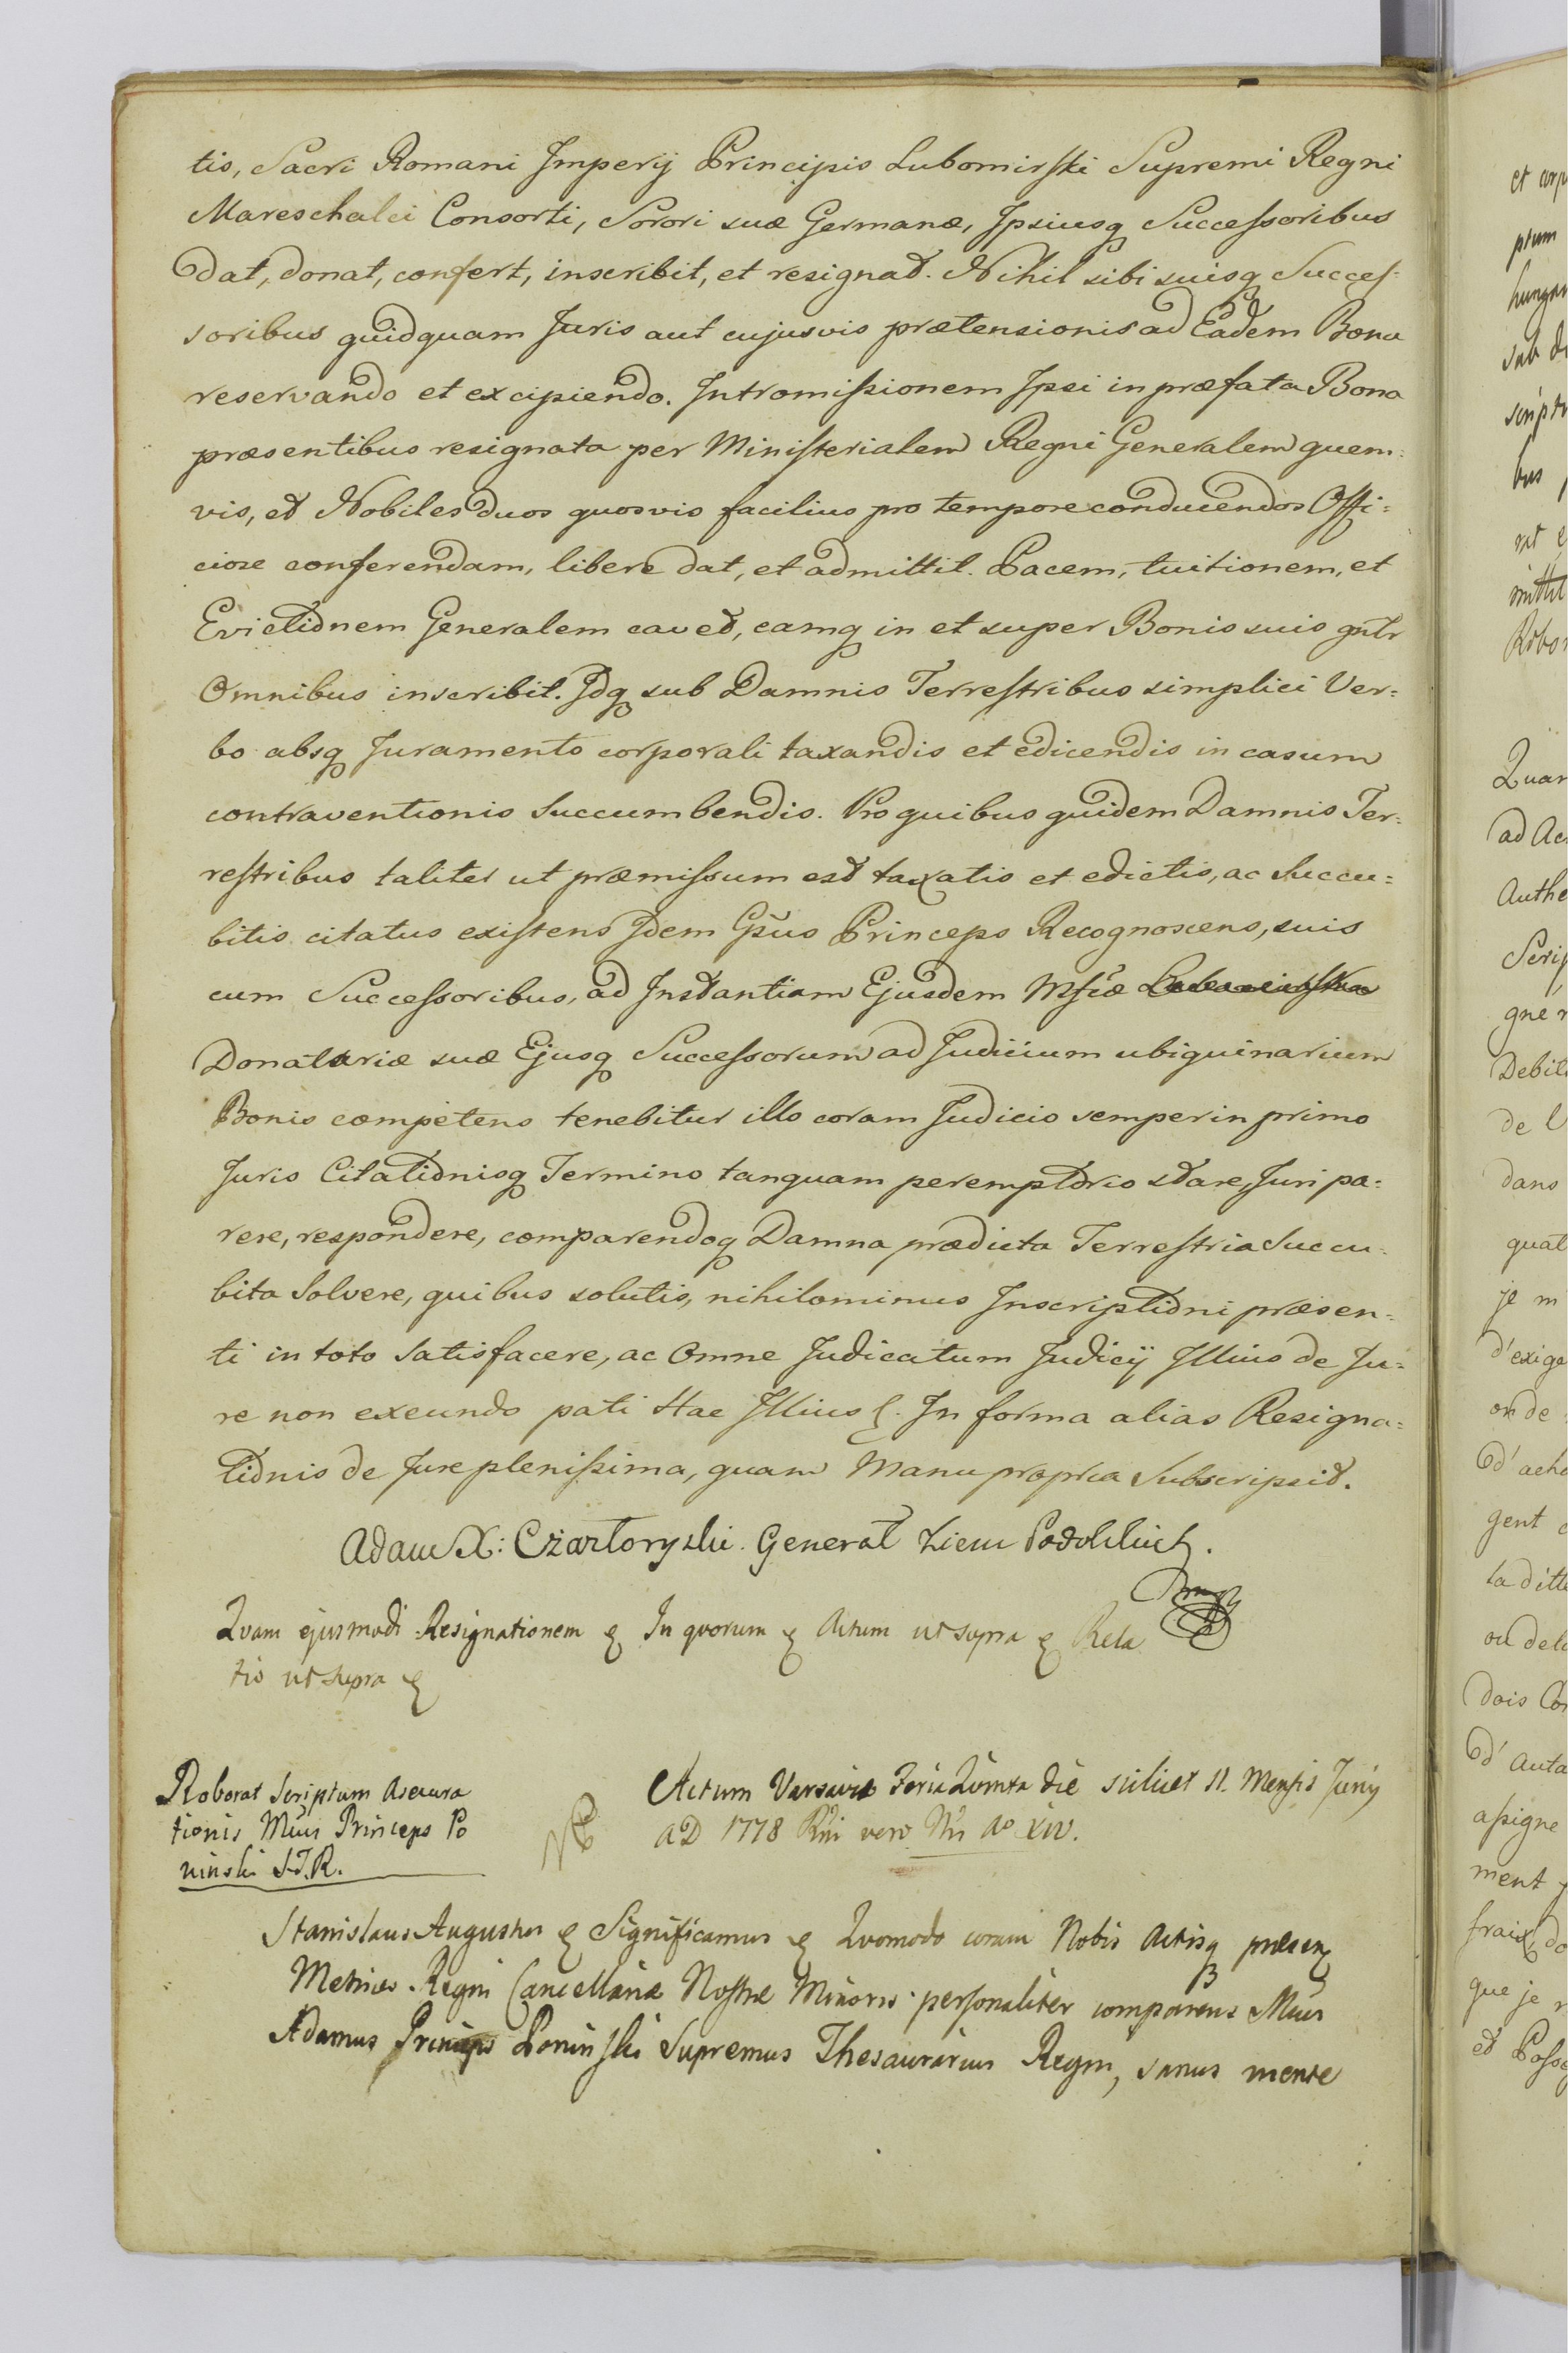 tis, Sacri Romani Imperij Principis Lubomirski Supremi Regni
Mareschalci Consorti, Sorori suæ Germanæ, Ipsiusq Successoribus
dat, donat, confert, inscribit, et resignat. Nihil sibi suisq Succes=
soribus quidquam Juris aut cujusvis prætensionis ad Eadem Bona
reservando et excipiendo. Intromissionem Ipsi in præfata Bona
præsentibus resignata per Ministerialem Regni Generalem quem=
vis, et Nobiles duos quosvis facilius pro tempore conducendos Offi=
ciose conferendam, libere dat, et admittit. Pacem, tuitionem, et
Evictionem Generalem cavet, eamq in et super Bonis suis gnlr
Omnibus inscribit. Idq sub Damnis Terrestribus simplici Ver=
bo absq Juramento corporali taxandis et edicendis in casum
contraventionis Succumbendis. Pro quibus quidem Damnis Ter=
restribus taliter ut præmissum est taxatis et edictis, ac succu=
bitis citatus existens Idem Gsus Princeps Recognoscens, suis
cum Successoribus, ad Instantiam Ejusdem Msfcæ
Donatariæ suæ Ejusq Successorum ad Judicium ubiquinarium
Bonis competens tenebitur illo coram Judicio semper in primo
Juris Citationisq Termino tanquam peremptorio stare, Juri pa=
rere, respondere, comparendoq Damna prædicta Terrestria Succu=
bita Solvere, quibus solutis, nihilominus Inscriptioni præsen=
ti in toto Satisfacere, ac Omne Judicatum Judicij Illius de Ju=
re non exeundo pati Hac Illius In forma alias Resigna=
tionis de Jure plenissima, quam Manu propria Subscripsit.
Adam X: Czartoryski. General Ziem Podolskich.
Quam ejusmodi Resignationem In quorum Actum ut supra Rela
tio ut supra
Roborat Scriptum Asecura
tionis Mcus Princeps Po
ninski S.T.R.
Actum Varsaviæ Feria Quinta die scilicet 11. Mensis Junij
AD 1778 Rni vero Nri Ao XIV.
Stanislaus Augustus Significamus Quomodo coram Nobis Actisq præsen
Metrices Regni Cancellariæ Nostræ Minoris personaliter comparens Mcus
Adamus Princeps Poninski Supremus Thesaurarius Regni, sanus mente
et corp
ptum
sub
scriptu
bus
mittit
Robo
Quan
ad Ac
Authe
Scrip
gné
Debit
de
dans
quat
je m
d'exige
on de
d'ache
gent
la ditte
ou dela
dois Con
d'auta
assigne
ment
fraix do
que je
et Posse